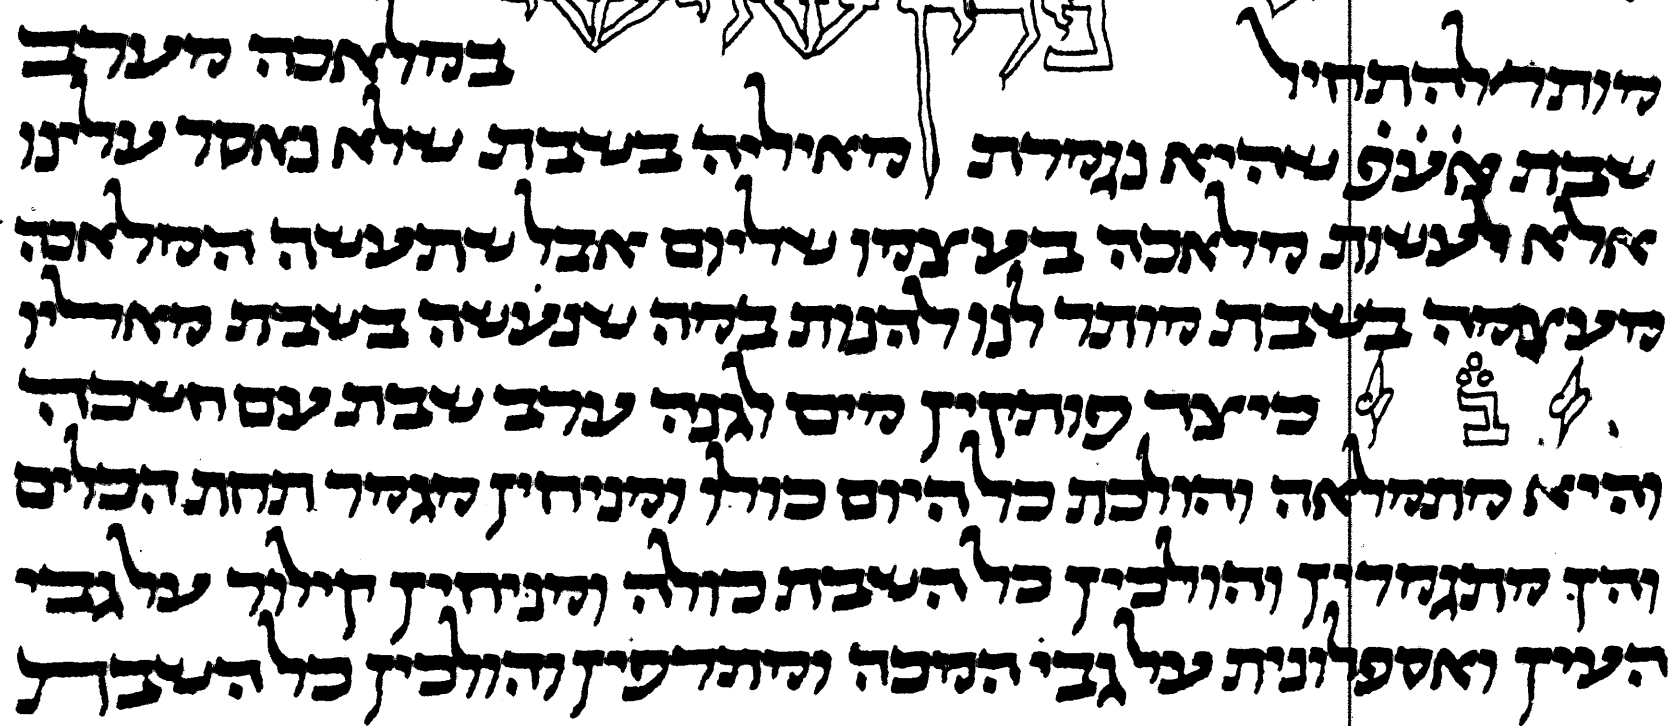 מותר להתחיל במלאכה מערב
שבת אע״פ שהיא נגמרת מאיליה בשבת שלא נאסר עלינו
אלא לעשות מלאכה בעצמו שליום אבל שתעשה המלאכה
מעצמה בשבת מותר לנו להנות במה שנעשה בשבת מאליו
ב כיצד פותקין מים לגנה ערב שבת עם חשכה
והיא מתמלאה והולכת כל היום כולו ומניחין מגמר תחת הכלים
והן מתגמרין והולכין כל השבת כולה ומניחין קילור על גבי
העין ואספלונית על גבי המכה ומתרפין והולכין כל השבת